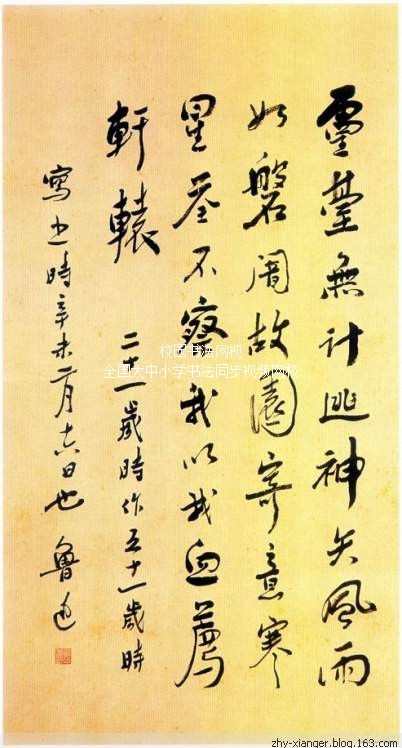 靈臺無計逃神矢風雨
如磐闇故園寄意寒
星荃不察我以我血薦
軒轅 二十一歲時作五十一歲時
寫之時辛未二月十六日也 魯迅
校园书法网视
全国大中小学书法同步视频网校
zhy-xianger.blog.163.com